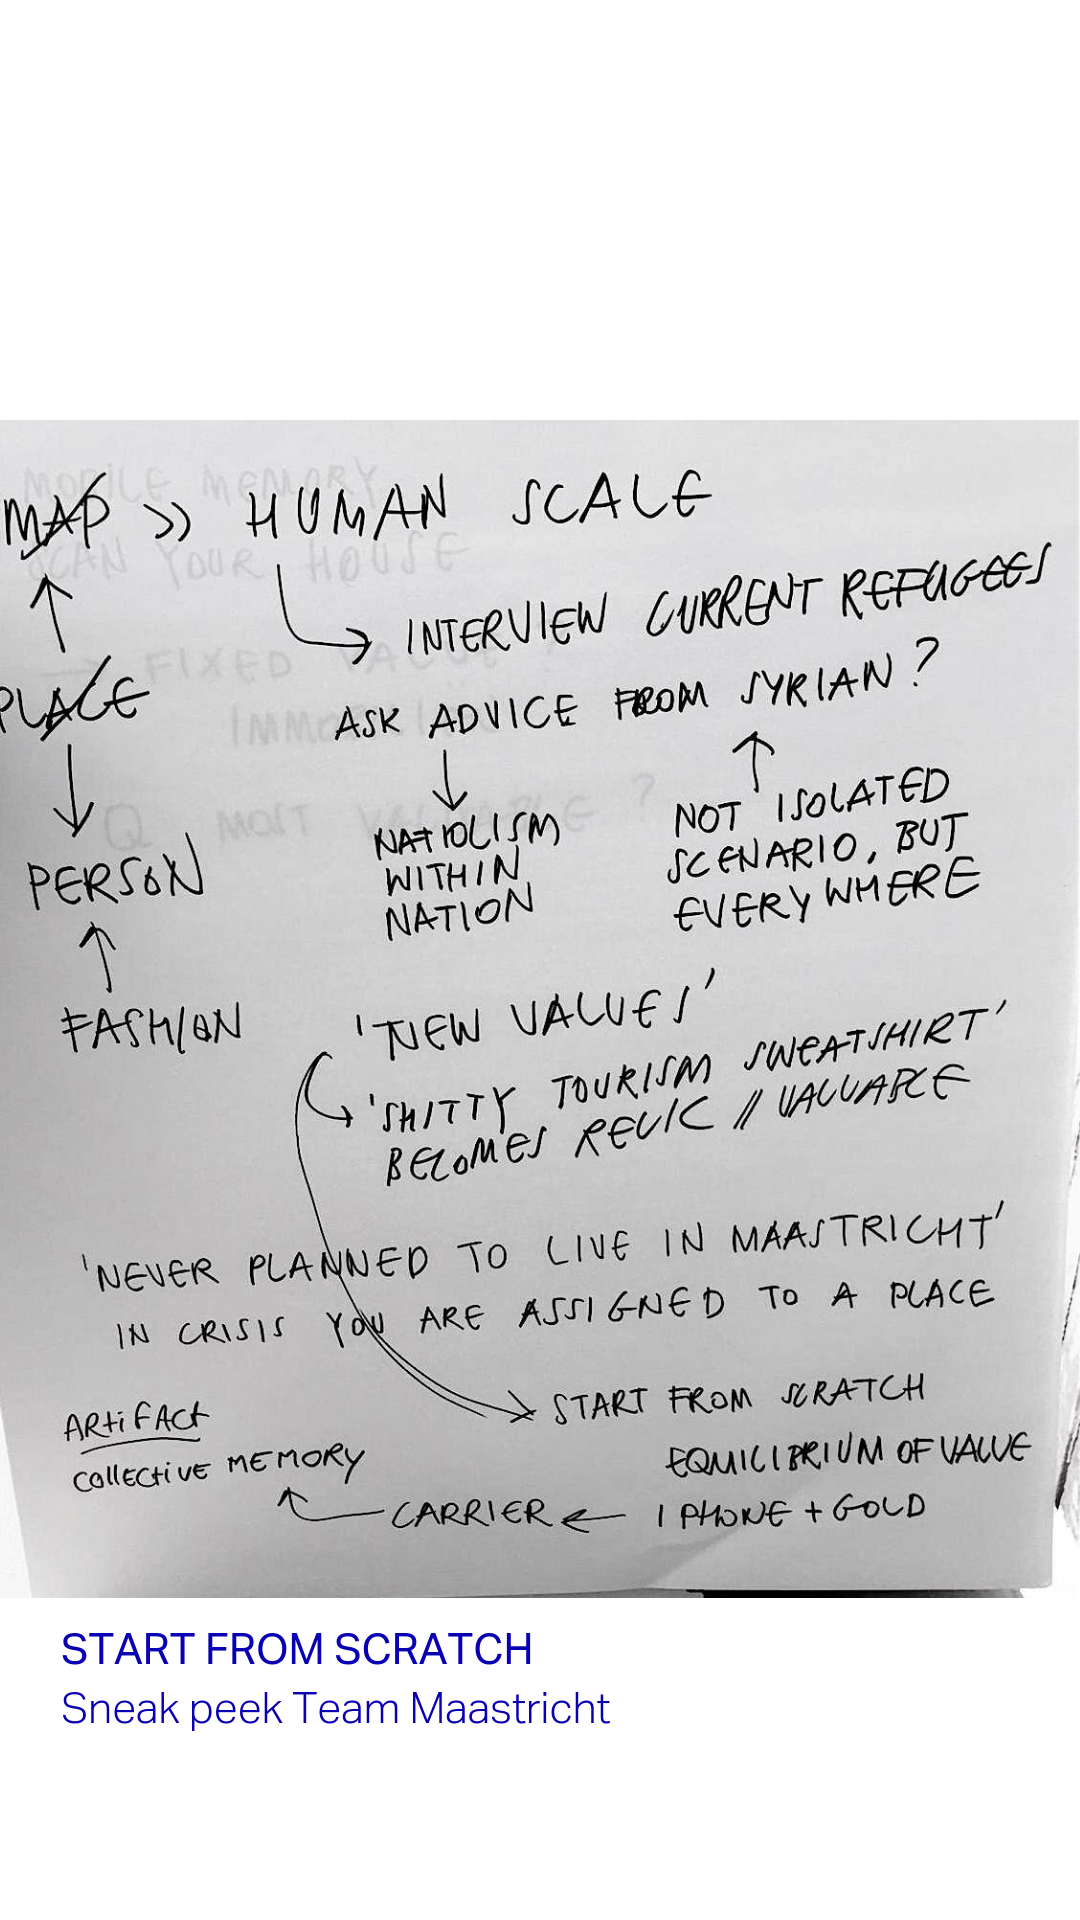 MAP >> HUMAN SCALE
INTERVIEW CURRENT REFUGEES
PLACE
ASK ADVICE FROM SYRIAN?
NATIOLISM
WITHIN
NATION
NOT ISOLATED
SCENARIO, BUT
EVERYWHERE
PERSON
FASHION
'NEW VALUES'
'SHITTY TOURISM SWEATSHIRT'
BECOMES RELIC // VALUABLE
'NEVER PLANNED TO LIVE IN MAASTRICHT'
IN CRISIS YOU ARE ASSIGNED TO A PLACE
START FROM SCRATCH
ARTiFACt
COllECtiVE MEMORY
EQUILIBRIUM OF VALUE
CARRIER
IPHONE + GOLD
MOBILE MEMORY
SCAN YOUR HOUSE
FIXED VALUE
Q MOST VALUABLE ?
START FROM SCRATCH
Sneak peek Team Maastricht